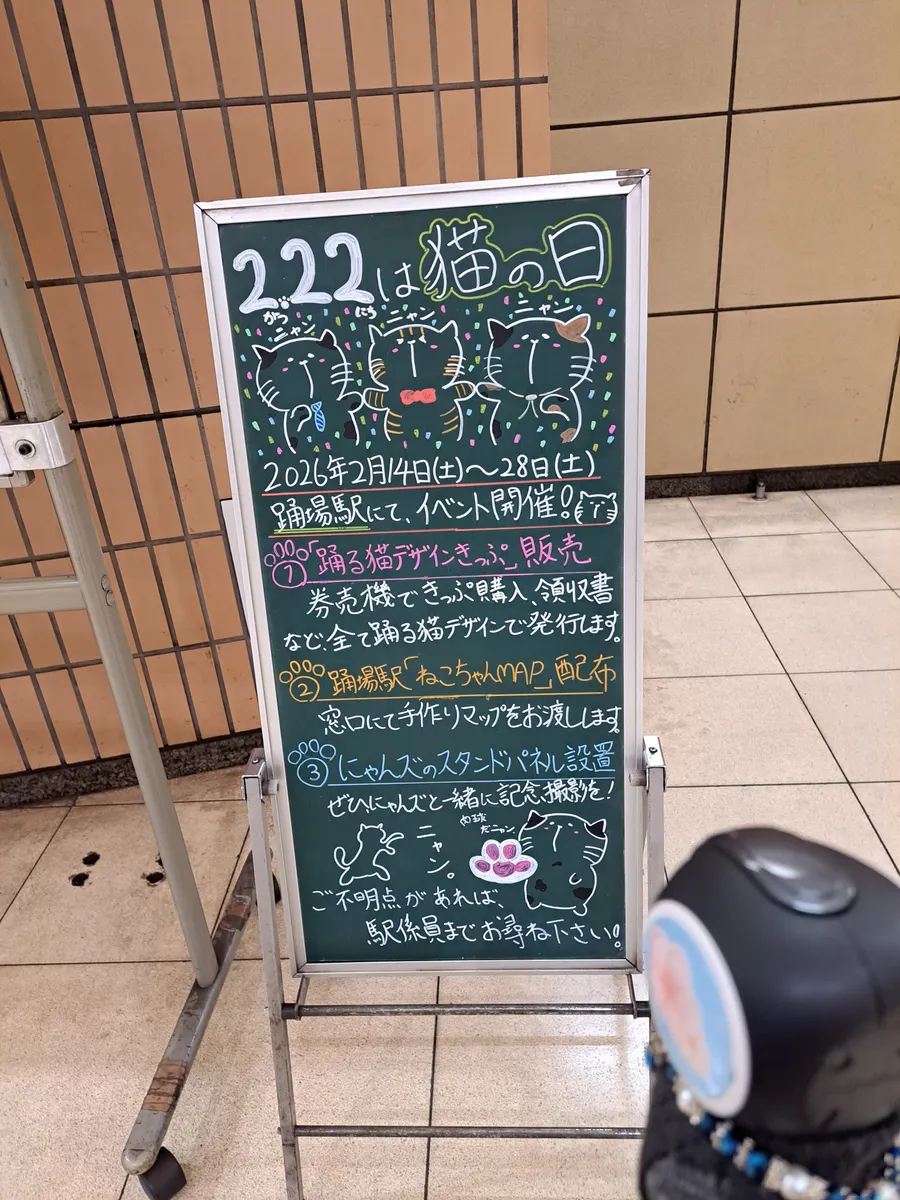 2.22は猫の日
がつ にち
ニャン ニャン ニャン
2026年2月14日(土)～28日(土)
踊場駅にて、イベント開催!
①「踊る猫デザインきっぷ」販売
券売機できっぷ購入、領収書
など、全て踊る猫デザインで発行します。
②踊場駅「ねこちゃんMAP」配布
窓口にて手作りマップをお渡しします。
③にゃんズのスタンドパネル設置
ぜひ、にゃんズと一緒に記念撮影を!
ニャン。
肉球だニャン。
ご不明点があれば、
駅係員までお尋ね下さい!